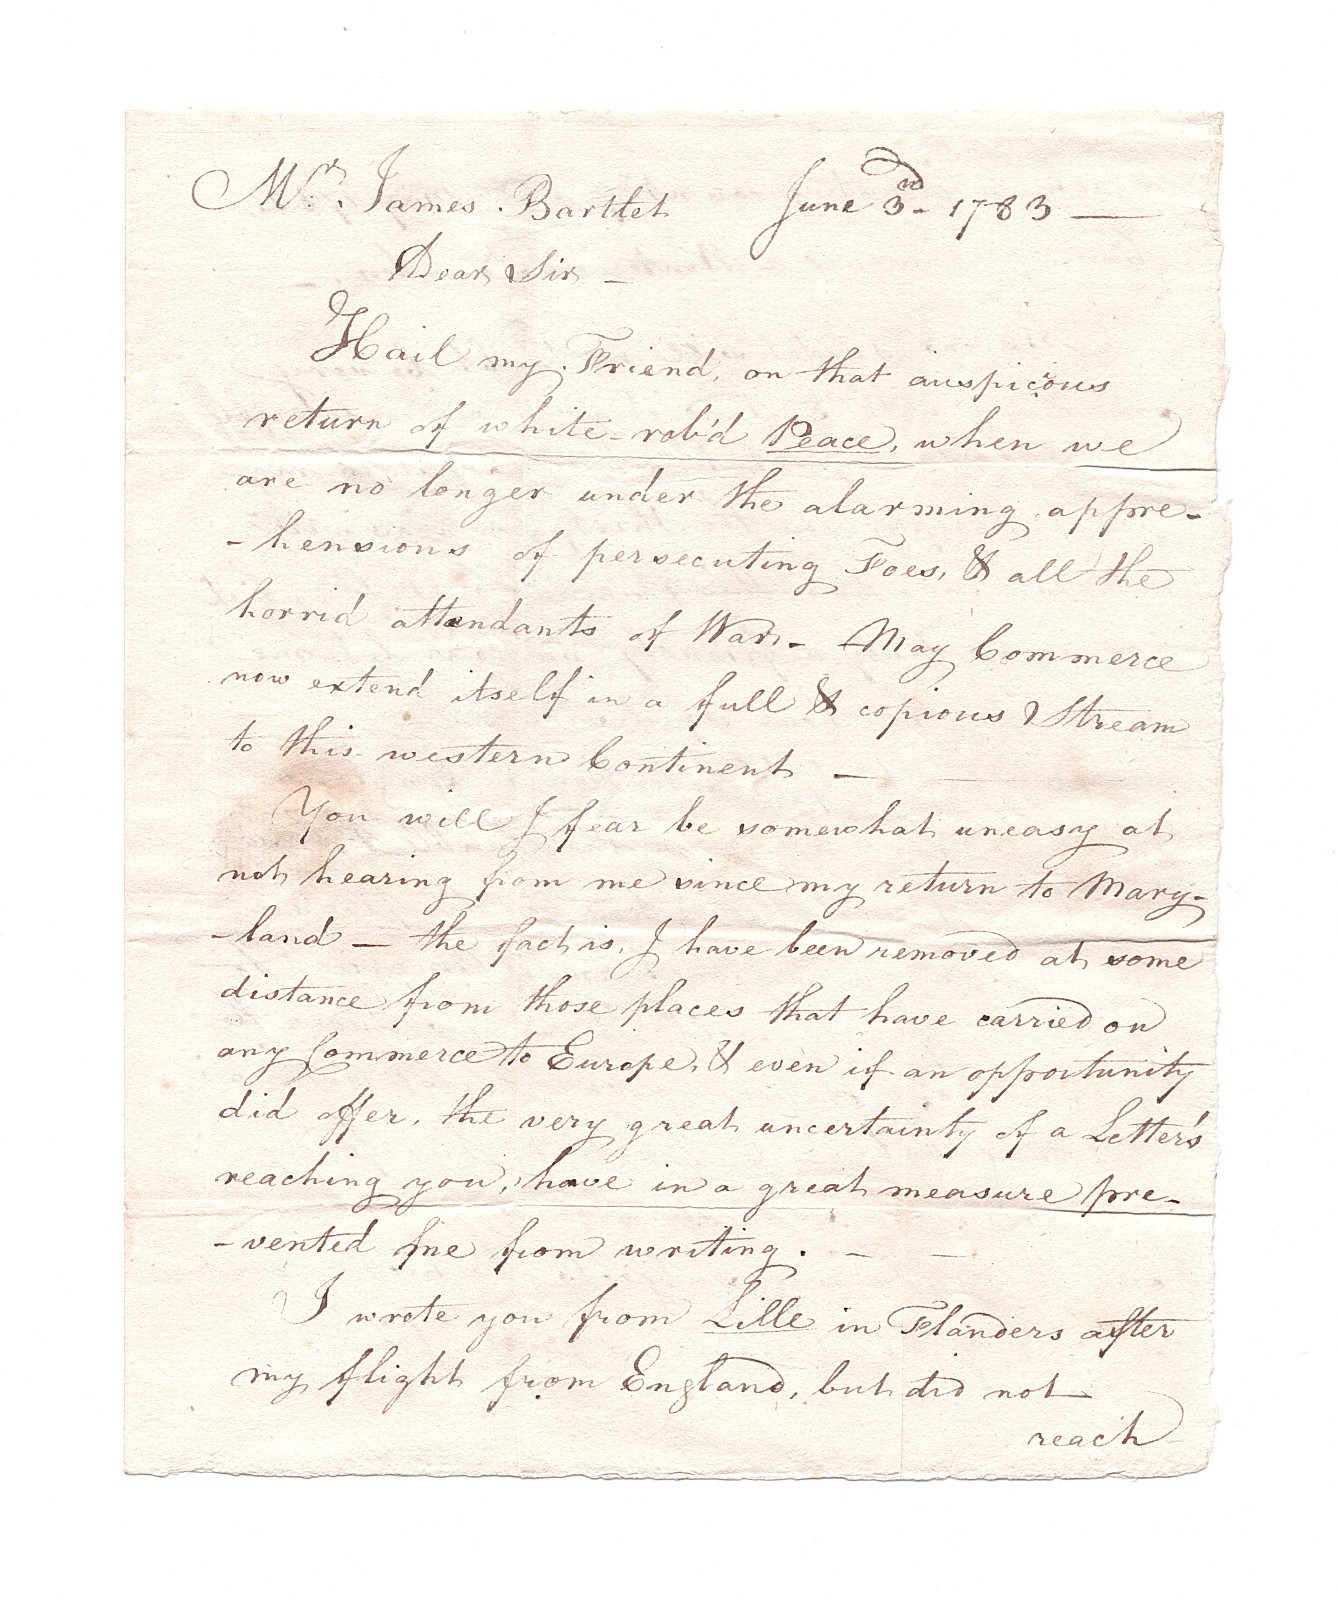 Mr. James Bartlet June 3d - 1783 —
Dear Sir —
Hail my Friend, on that auspicious
return of white-rob'd Peace, when we
are no longer under the alarming appre-
-hensions of persecuting Foes, & all the
horrid attendants of War - May Commerce
now extend itself in a full & copious Stream
to this western Continent —
You will I fear be somewhat uneasy at
not hearing from me since my return to Mary-
-land — the fact is, I have been removed at some
distance from those places that have carried on
any Commerce to Europe, & even if an opportunity
did offer, the very great uncertainty of a Letter's
reaching you, have in a great measure pre-
-vented me from writing. — —
I wrote you from Lille in Flanders after
my flight from England, but did not
reach